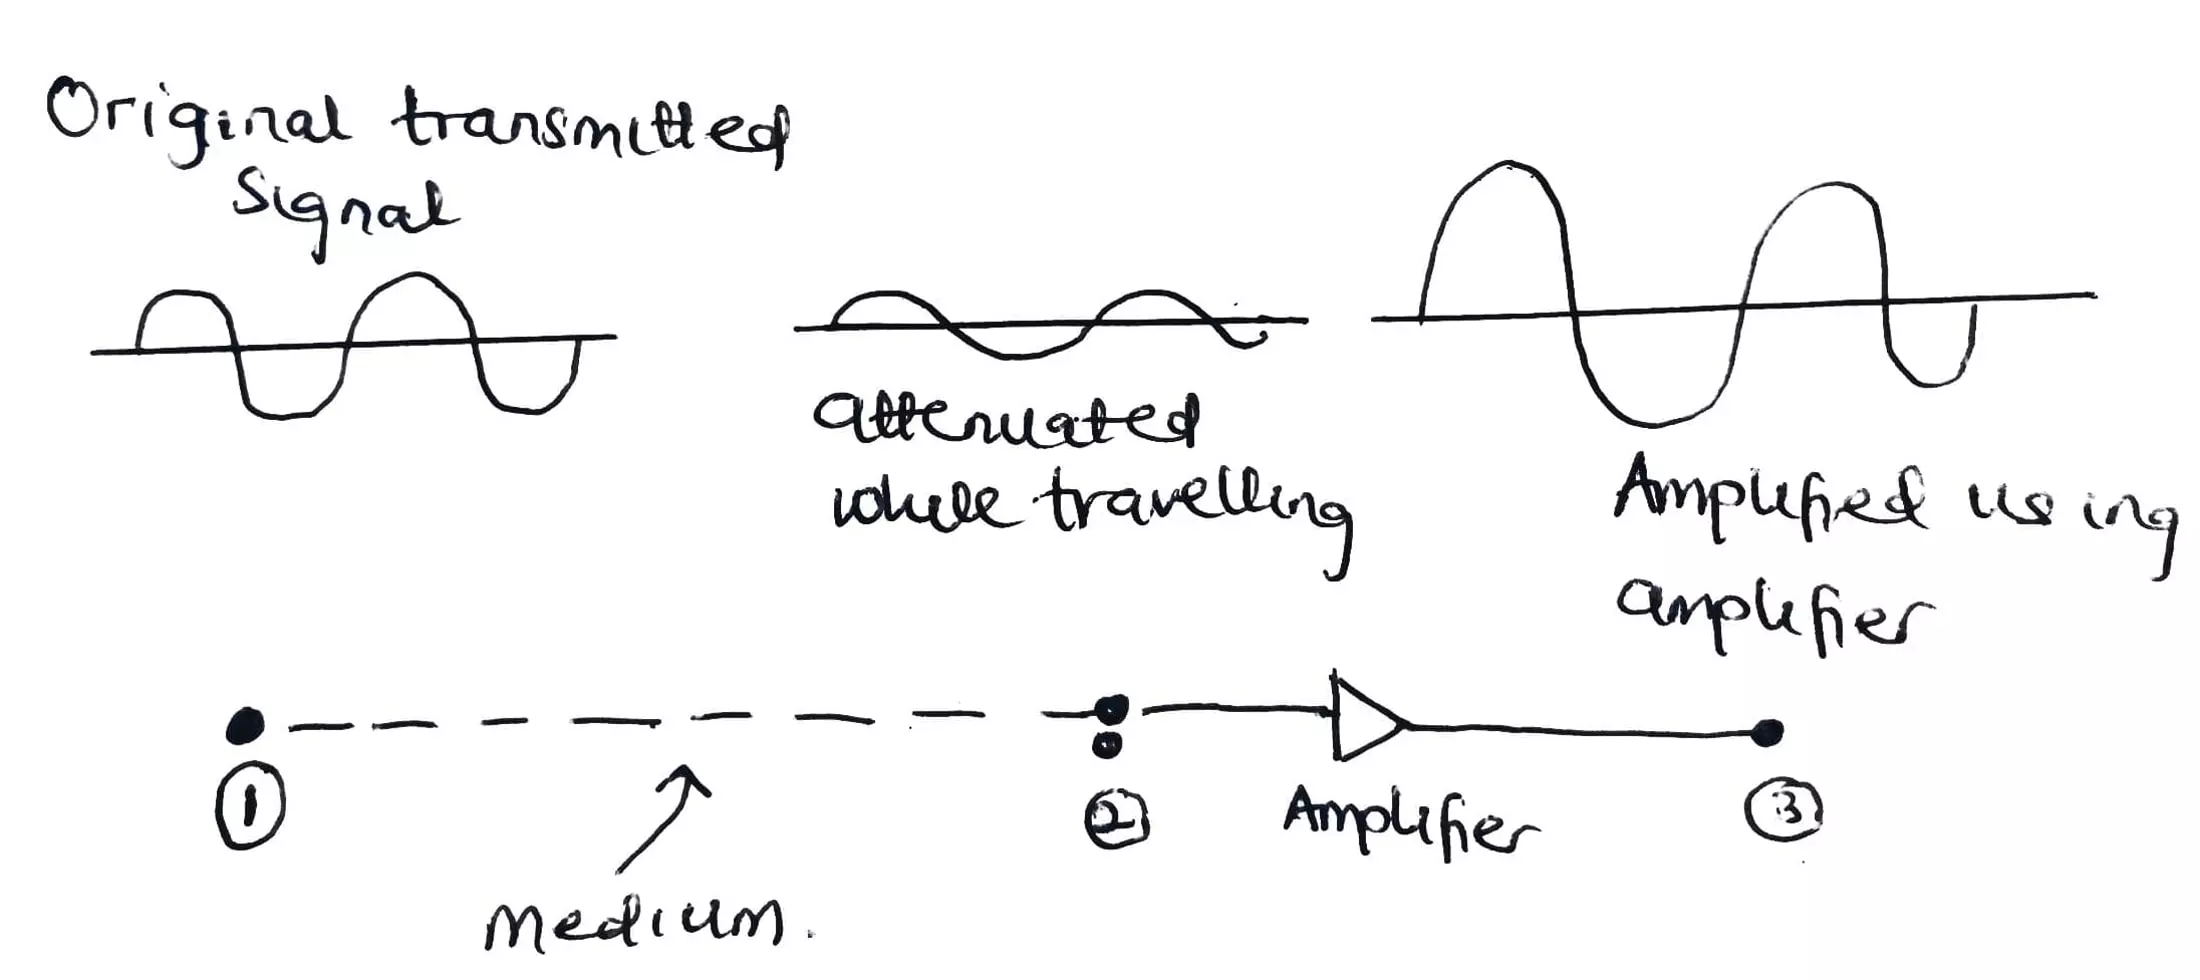 Original transmitted
Signal
attenuated
while travelling
Amplified using
amplifier
1
2
Amplifier
3
Medium.